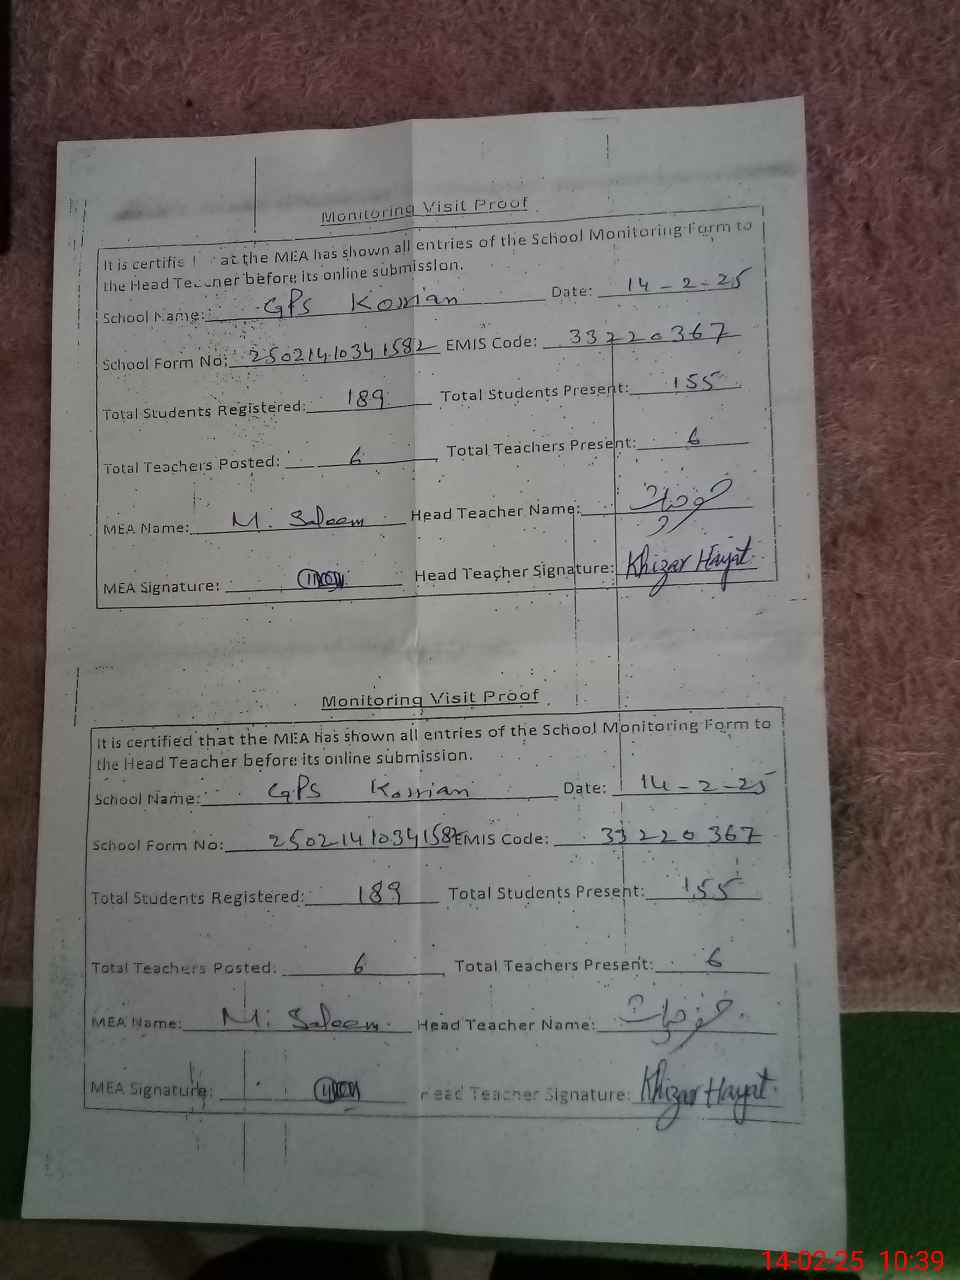 Monitoring Visit Proof
It is certified at the MEA has shown all entries of the School Monitoring Form to
the Head Teacher before its online submission.
School Name: GPS Korrian Date: 14-2-25
School Form No: 25021410341582 EMIS Code: 33220367
Total Students Registered: 189 Total Students Present: 155
Total Teachers Posted: 6 Total Teachers Present: 6
MEA Name: M. Saleem Head Teacher Name: خضر حیات
MEA Signature: Head Teacher Signature: Khizar Hayat
Monitoring Visit Proof
It is certified that the MEA has shown all entries of the School Monitoring Form to
the Head Teacher before its online submission.
School Name: GPS Korrian Date: 14-2-25
School Form No: 2502141034158 EMIS Code: 33220367
Total Students Registered: 189 Total Students Present: 155
Total Teachers Posted: 6 Total Teachers Present: 6
MEA Name: M. Saleem Head Teacher Name: خضر حیات
MEA Signature: Head Teacher Signature: Khizar Hayat
14-02-25 10:39